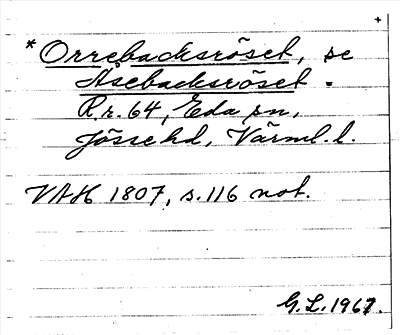 +
* Orrebacksröset, se
Åsebacksröset.
R.r. 64, Eda sn,
Jösse hd, Värml. l.
VAH 1807, s. 116 not.
G.L. 1967.